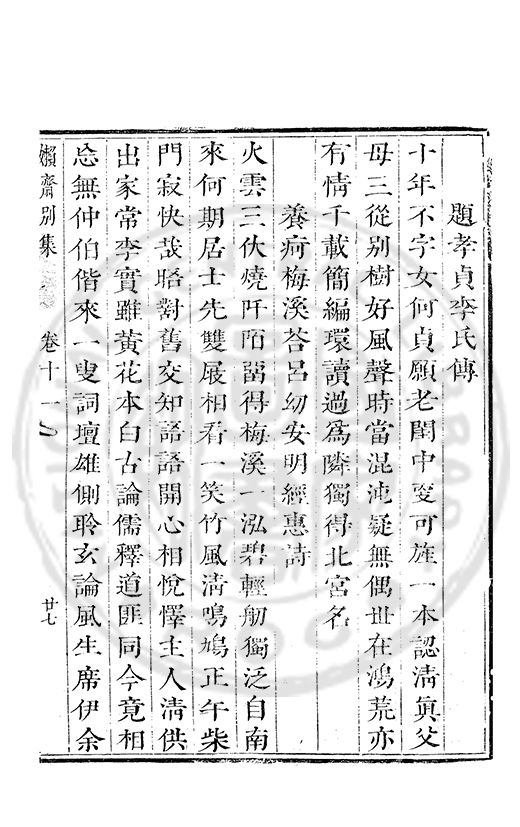 題孝貞李氏傳
十年不字女何貞願老閨中叟可旌一本認淸眞父
母三從別樹好風聲時當混沌疑無偶世在鴻荒亦
有情千載簡編環讀過爲隣獨得北宮名
養疴梅溪荅呂幼安明經惠詩
火雲三伏燒阡陌畱得梅溪一泓碧輕舠獨泛自南
來何期居士先雙屐相看一笑竹風淸鳴鳩正午柴
門寂快哉晤對舊交知語語開心相悅懌主人淸供
出家常李實雖黃花本白古論儒釋道匪同今竟相
忘無仲伯偕來一叟詞壇雄側聆玄論風生席伊余
嬾齋別集 卷十一 廿七